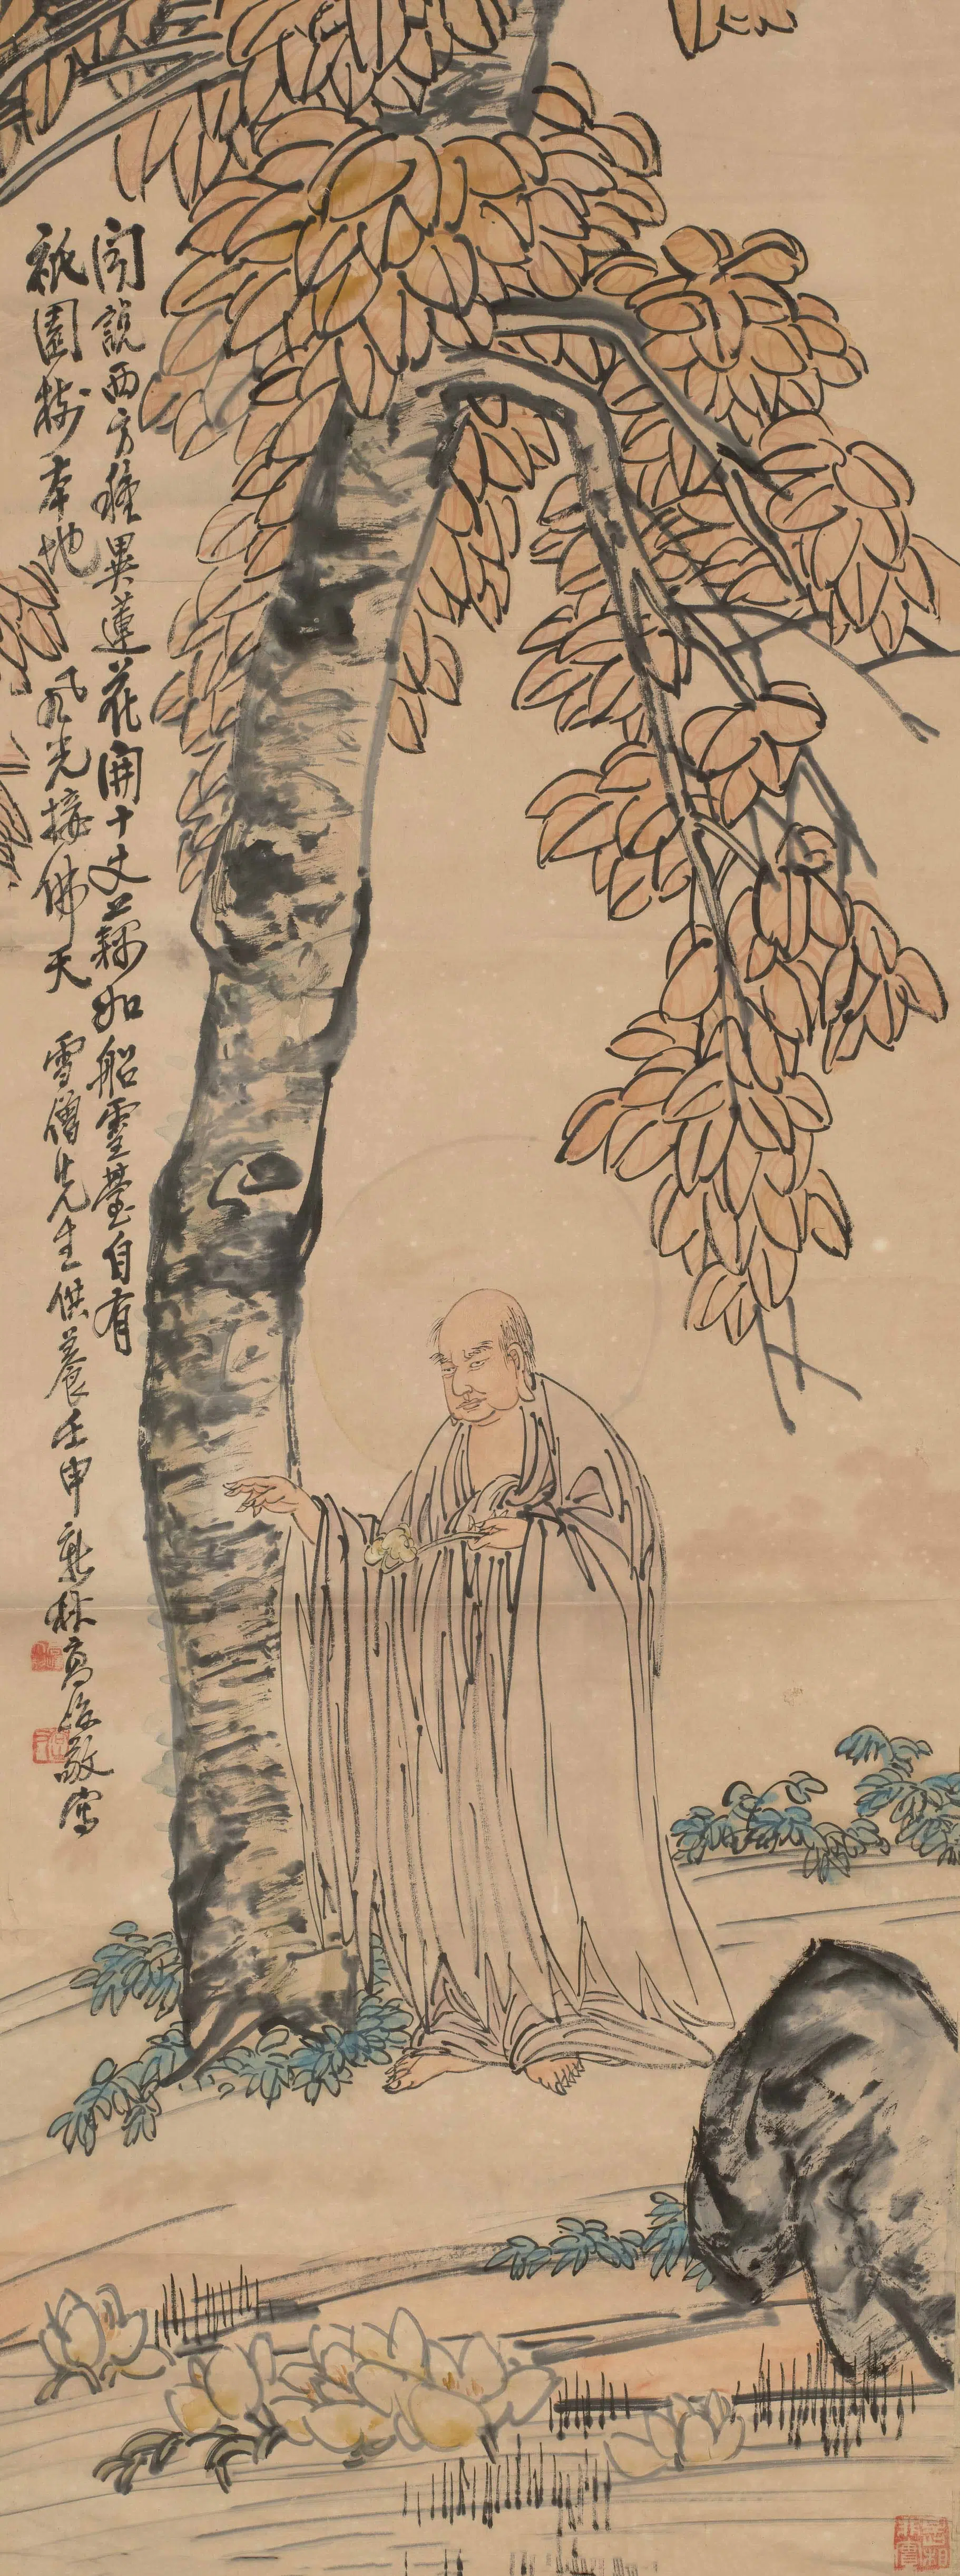 聞說西方種異蓮花開十丈藕如船靈臺自有
祇園樹本地風光接佛天 雪僧先生供養壬申新秋高　敬寫